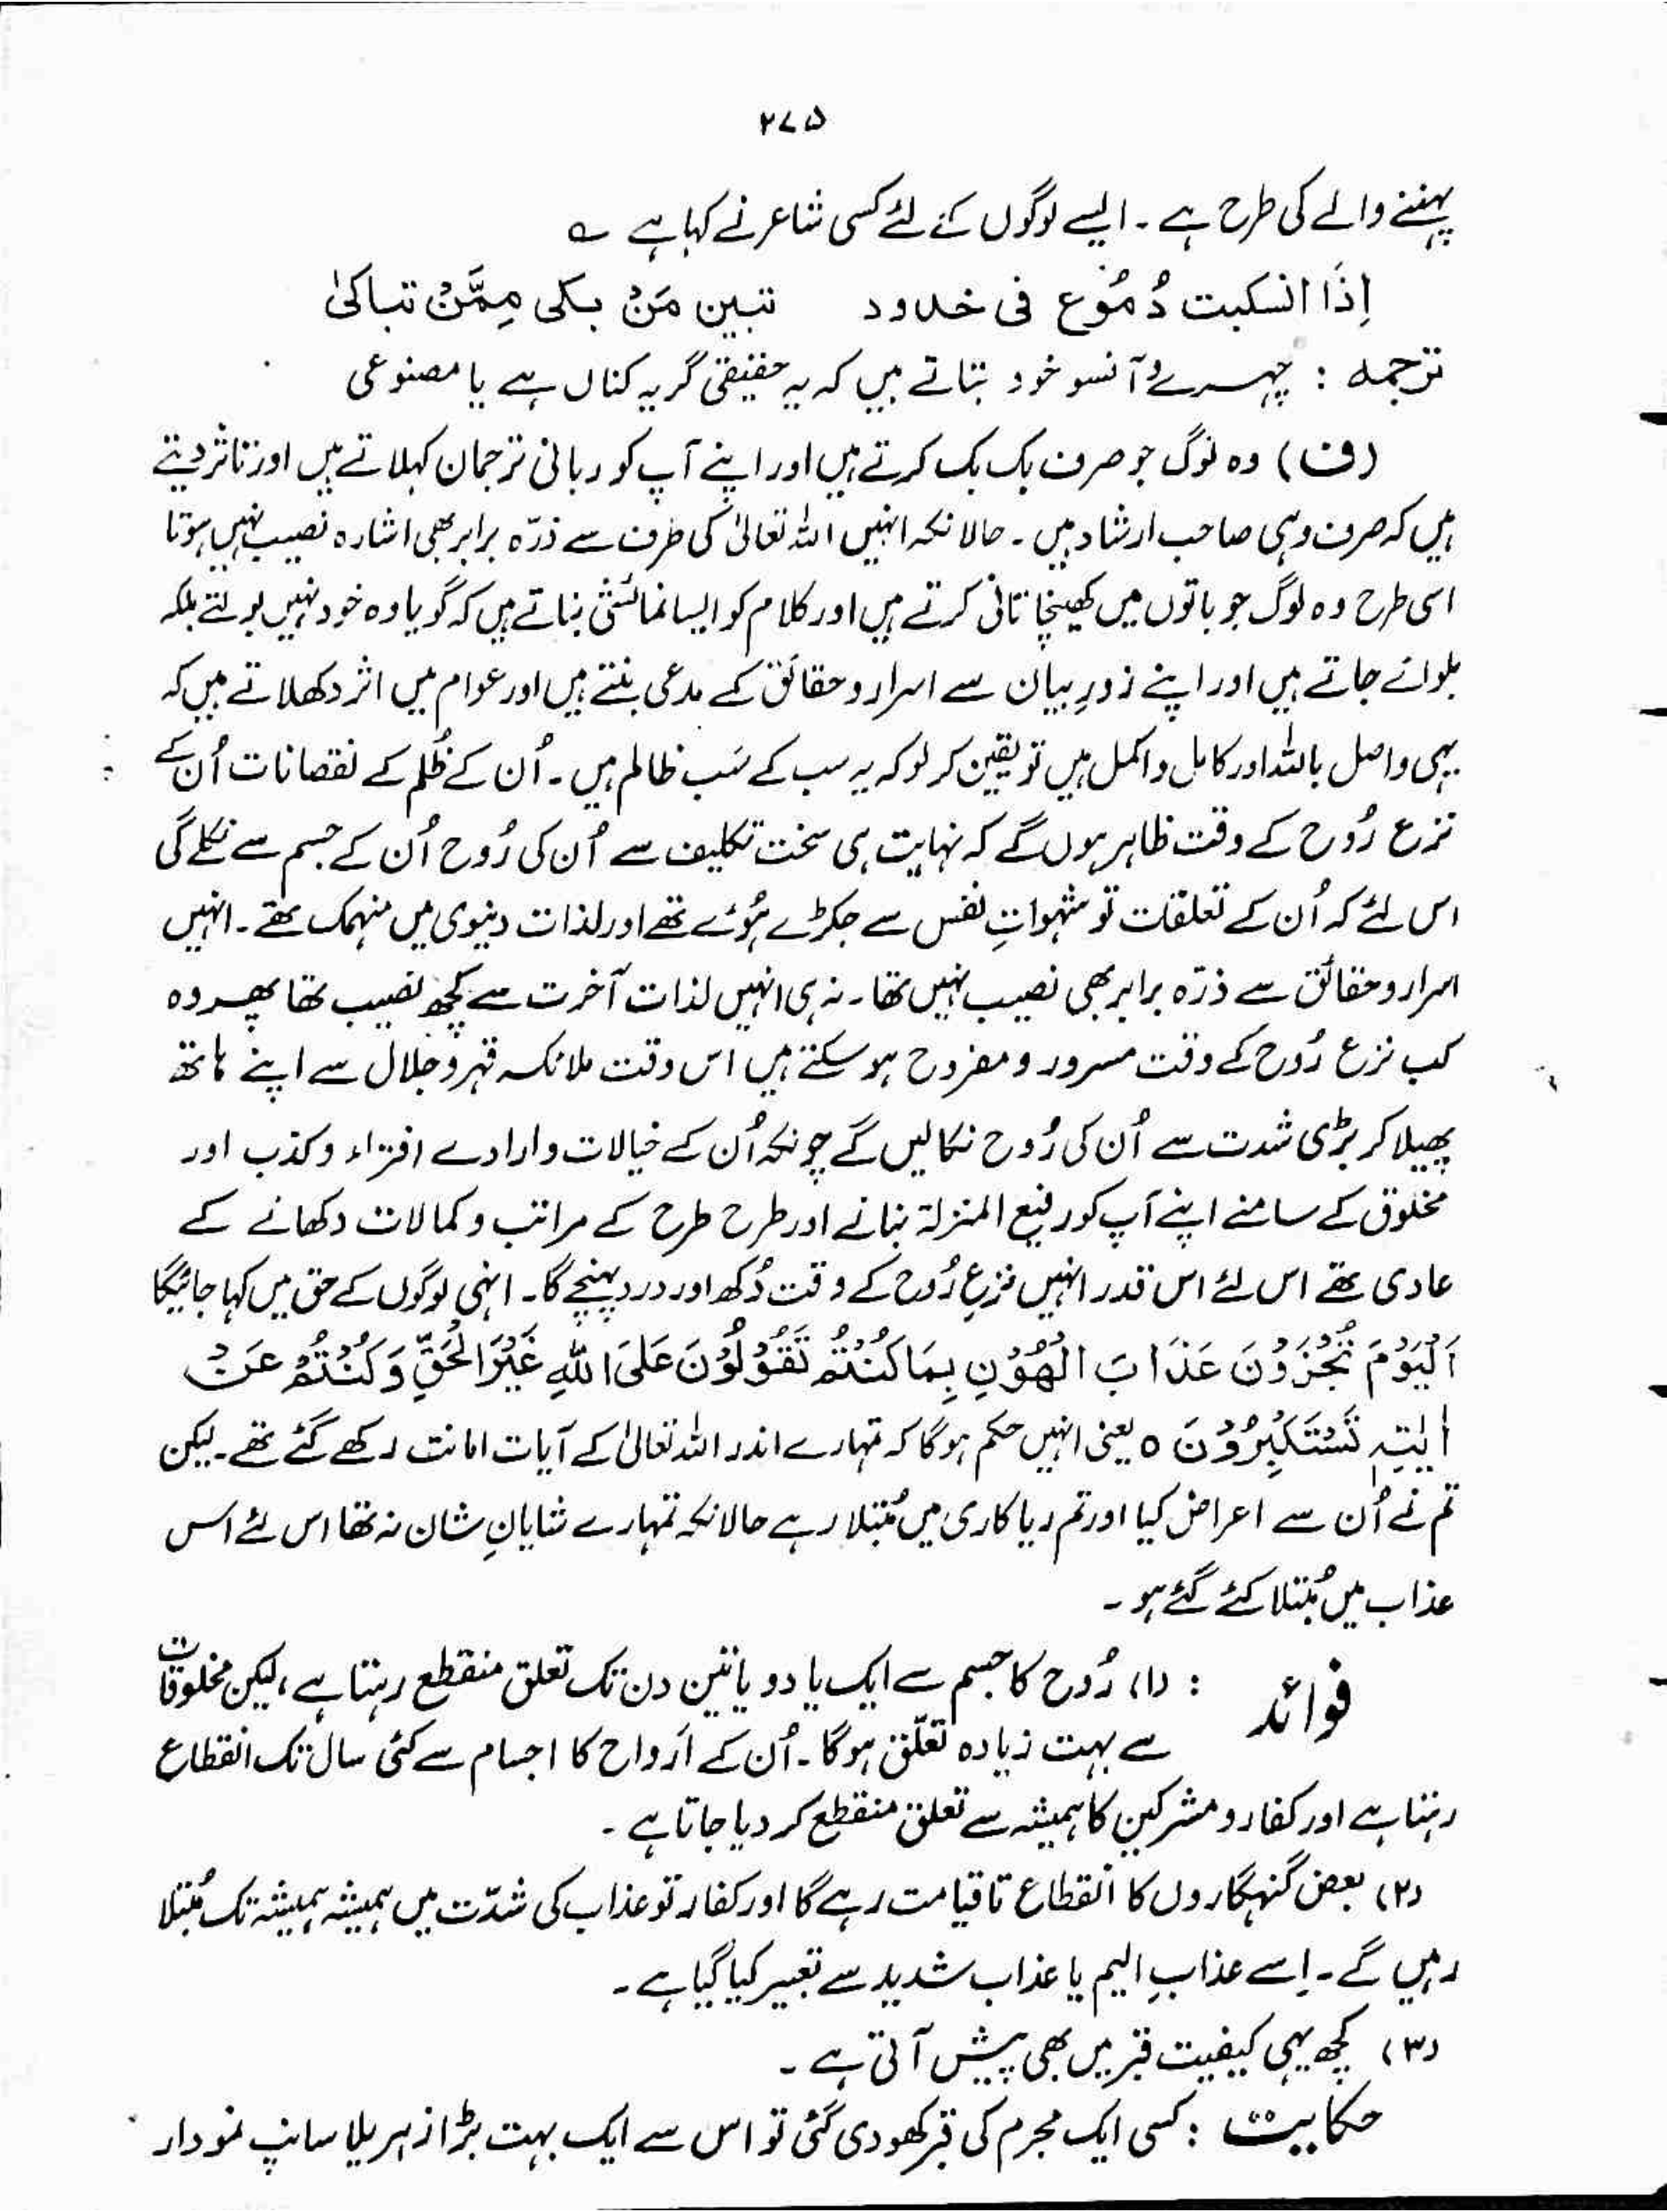 ۲۷۵
پہننے والے کی طرح ہے ۔ ایسے لوگوں کے لئے کسی شاعر نے کہا ہے ؎
اِذَا انسکبت دُمُوع فی خدود      تبین مَنْ بکی مِمَّنْ تباکیٰ
ترجمہ : چہرے آنسو خود بتاتے ہیں کہ یہ حقیقی گریہ کناں ہے یا مصنوعی
(ف) وہ لوگ جو صرف بک بک کرتے ہیں اور اپنے آپ کو ربانی ترجمان کہلاتے ہیں اور تاثر دیتے
ہیں کہ صرف وہی صاحب ارشاد ہیں ۔ حالانکہ انہیں اللہ تعالیٰ کی طرف سے ذرّہ برابر بھی اشارہ نصیب نہیں ہوتا
اسی طرح وہ لوگ جو باتوں میں کھینچا تانی کرتے ہیں اور کلام کو ایسا نمائشی بناتے ہیں کہ گویا وہ خود نہیں بولتے بلکہ
بلوائے جاتے ہیں اور اپنے زورِ بیان سے اسرار و حقائق کے مدعی بنتے ہیں اور عوام میں اثر دکھلاتے ہیں کہ
یہی واصل باللہ اور کامل و اکمل ہیں تو یقین کر لو کہ یہ سب کے سَب ظالم ہیں ۔ اُن کے ظُلم کے نقصانات اُن کے
نزع رُوح کے وقت ظاہر ہوں گے کہ نہایت ہی سخت تکلیف سے اُن کی رُوح اُن کے جسم سے نکلے گی
اس لئے کہ اُن کے تعلقات تو شہواتِ نفس سے جکڑے ہُوئے تھے اور لذات دنیوی میں منہمک تھے ۔ انہیں
اسرار و حقائق سے ذرّہ برابر بھی نصیب نہیں تھا ۔ نہ ہی انہیں لذات آخرت سے کچھ نصیب تھا پھر وہ
کب نزع رُوح کے وقت مسرور و مفروح ہو سکتے ہیں اس وقت ملائکہ قہر و جلال سے اپنے ہاتھ
پھیلا کر بڑی شدت سے اُن کی رُوح نکالیں گے چونکہ اُن کے خیالات و ارادے افتراء و کذب اور
مخلوق کے سامنے اپنے آپ کو رفیع المنزلۃ بنانے اور طرح طرح کے مراتب و کمالات دکھانے کے
عادی تھے اس لئے اس قدر انہیں نزعِ رُوح کے وقت دُکھ اور درد پہنچے گا ۔ انہی لوگوں کے حق میں کہا جائیگا
اَلْیَوْمَ تُجْزَوْنَ عَذَابَ الْھُوْنِ بِمَا کُنْتُمْ تَقُوْلُوْنَ عَلَی اللّٰہِ غَیْرَ الْحَقِّ وَکُنْتُمْ عَنْ
اٰیٰتِہٖ تَسْتَکْبِرُوْنَ ہ یعنی انہیں حکم ہوگا کہ تمہارے اندر اللہ تعالیٰ کے آیات امانت رکھے گئے تھے ۔ لیکن
تم نے اُن سے اعراض کیا اور تم ریا کاری میں مُبتلا رہے حالانکہ تمہارے شایانِ شان نہ تھا اس لئے اس
عذاب میں مُبتلا کئے گئے ہو ۔
فوائد : (۱) رُوح کا جسم سے ایک یا دو یا تین دن تک تعلق منقطع رہتا ہے ، لیکن مخلوقات
سے بہت زیادہ تعلّق ہوگا ۔ اُن کے اَرواح کا اجسام سے کئی سال تک انقطاع
رہتا ہے اور کفار و مشرکین کا ہمیشہ سے تعلق منقطع کر دیا جاتا ہے ۔
(۲) بعض گنہگاروں کا انقطاع تا قیامت رہے گا اور کفار تو عذاب کی شدّت میں ہمیشہ ہمیشہ تک مُبتلا
رہیں گے ۔ اِسے عذابِ الیم یا عذاب شدید سے تعبیر کیا گیا ہے ۔
(۳) کچھ یہی کیفیت قبر میں بھی پیش آتی ہے ۔
حکایت : کسی ایک مجرم کی قبر کھودی گئی تو اس سے ایک بہت بڑا زہریلا سانپ نمودار